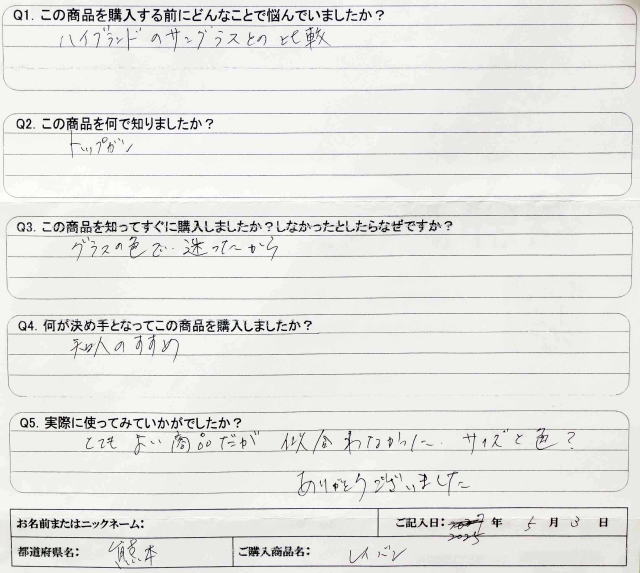 Q1. この商品を購入する前にどんなことで悩んでいましたか？
ハイブランドのサングラスとの比較
Q2. この商品を何で知りましたか？
トップガン
Q3. この商品を知ってすぐに購入しましたか？しなかったとしたらなぜですか？
グラスの色で迷ってたから
Q4. 何が決め手となってこの商品を購入しましたか？
知人のすすめ
Q5. 実際に使ってみていかがでしたか？
とてもよい商品だが 似合わなかった。サイズと色？
ありがとうございました
お名前またはニックネーム：
ご記入日： 2025 年 5 月 3 日
都道府県名： 熊本 ご購入商品名： レイバン